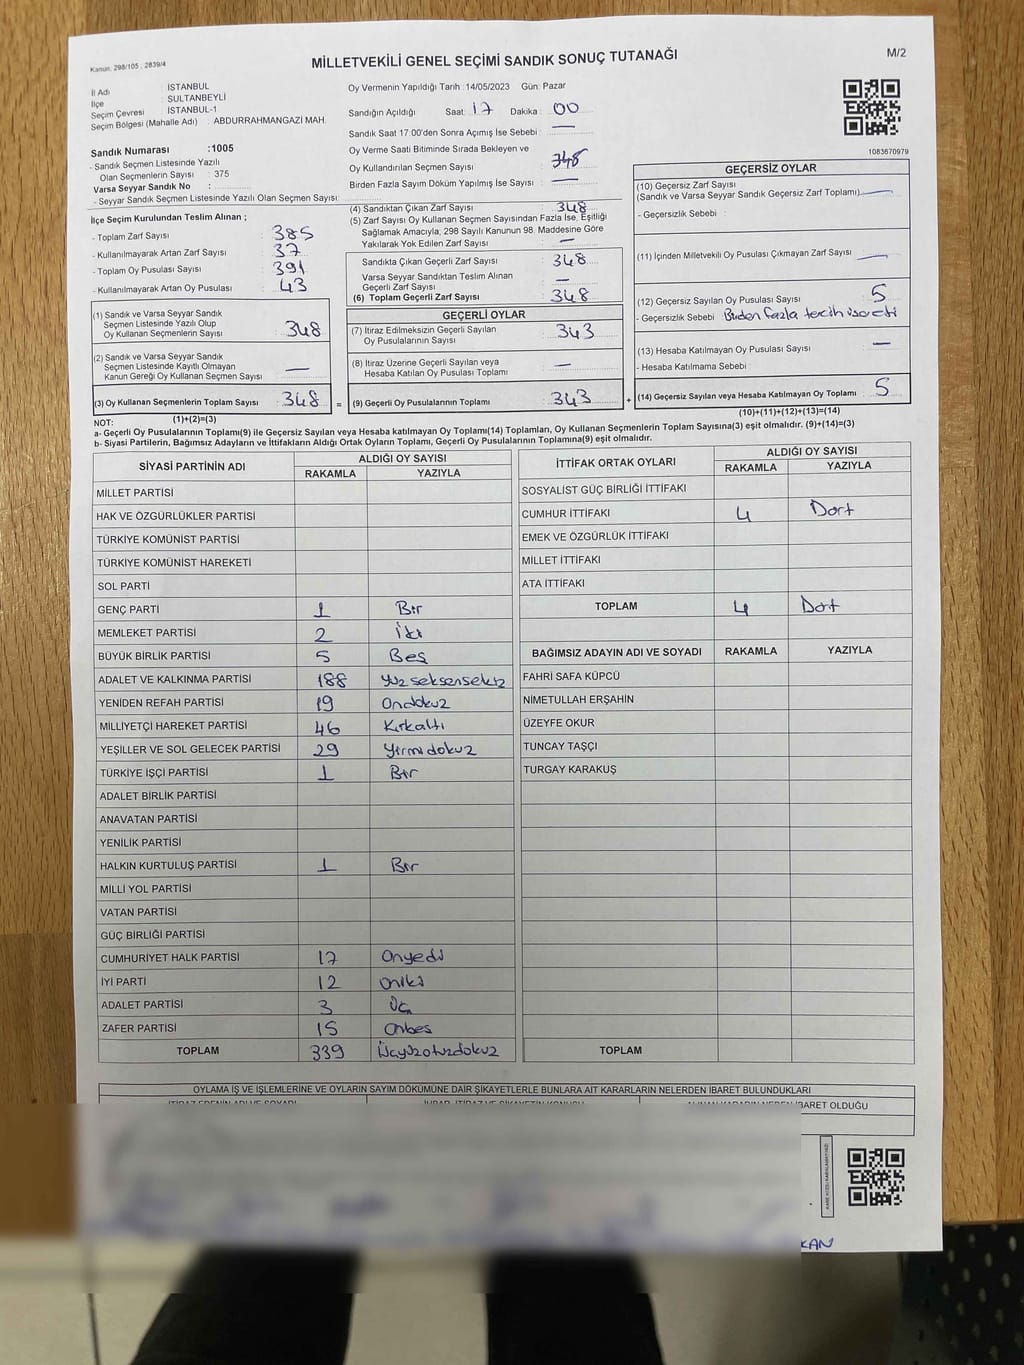 Kanun: 298/105 , 2839/4
MİLLETVEKİLİ GENEL SEÇİMİ SANDIK SONUÇ TUTANAĞI
M/2
İl Adı : İSTANBUL
İlçe : SULTANBEYLİ
Seçim Çevresi : İSTANBUL-1
Seçim Bölgesi (Mahalle Adı) : ABDURRAHMANGAZİ MAH.
Sandık Numarası :1005
- Sandık Seçmen Listesinde Yazılı
Olan Seçmenlerin Sayısı : 375
Varsa Seyyar Sandık No :
- Seyyar Sandık Seçmen Listesinde Yazılı Olan Seçmen Sayısı:
İlçe Seçim Kurulundan Teslim Alınan ;
- Toplam Zarf Sayısı : 385
- Kullanılmayarak Artan Zarf Sayısı : 37
- Toplam Oy Pusulası Sayısı : 391
- Kullanılmayarak Artan Oy Pusulası : 43
(1) Sandık ve Varsa Seyyar Sandık
Seçmen Listesinde Yazılı Olup
Oy Kullanan Seçmenlerin Sayısı : 348
(2) Sandık ve Varsa Seyyar Sandık
Seçmen Listesinde Kayıtlı Olmayan
Kanun Gereği Oy Kullanan Seçmen Sayısı : —
(3) Oy Kullanan Seçmenlerin Toplam Sayısı : 348 =
(1)+(2)=(3)
Oy Vermenin Yapıldığı Tarih :14/05/2023 Gün: Pazar
Sandığın Açıldığı Saat: 17 Dakika : 00
Sandık Saat 17:00'den Sonra Açımış İse Sebebi : —
Oy Verme Saati Bitiminde Sırada Bekleyen ve
Oy Kullandırılan Seçmen Sayısı : 348
Birden Fazla Sayım Döküm Yapılmış İse Sayısı : —
(4) Sandıktan Çıkan Zarf Sayısı : 348
(5) Zarf Sayısı Oy Kullanan Seçmen Sayısından Fazla İse, Eşitliği
Sağlamak Amacıyla, 298 Sayılı Kanunun 98. Maddesine Göre
Yakılarak Yok Edilen Zarf Sayısı : —
Sandıkta Çıkan Geçerli Zarf Sayısı : 348
Varsa Seyyar Sandıktan Teslim Alınan
Geçerli Zarf Sayısı : —
(6) Toplam Geçerli Zarf Sayısı : 348
GEÇERLİ OYLAR
(7) İtiraz Edilmeksizin Geçerli Sayılan
Oy Pusulalarının Sayısı : 343
(8) İtiraz Üzerine Geçerli Sayılan veya
Hesaba Katılan Oy Pusulası Toplamı : —
(9) Geçerli Oy Pusulalarının Toplamı : 343 +
1083670979
GEÇERSİZ OYLAR
(10) Geçersiz Zarf Sayısı
(Sandık ve Varsa Seyyar Sandık Geçersiz Zarf Toplamı) —
- Geçersizlik Sebebi :
(11) İçinden Milletvekili Oy Pusulası Çıkmayan Zarf Sayısı —
(12) Geçersiz Sayılan Oy Pusulası Sayısı : 5
- Geçersizlik Sebebi : Birden fazla tercih işareti
(13) Hesaba Katılmayan Oy Pusulası Sayısı : —
- Hesaba Katılmama Sebebi :
(14) Geçersiz Sayılan veya Hesaba Katılmayan Oy Toplamı : 5
(10)+(11)+(12)+(13)=(14)
NOT:
a- Geçerli Oy Pusulalarının Toplamı(9) ile Geçersiz Sayılan veya Hesaba katılmayan Oy Toplamı(14) Toplamları, Oy Kullanan Seçmenlerin Toplam Sayısına(3) eşit olmalıdır. (9)+(14)=(3)
b- Siyasi Partilerin, Bağımsız Adayların ve İttifakların Aldığı Ortak Oyların Toplamı, Geçerli Oy Pusulalarının Toplamına(9) eşit olmalıdır.
SİYASİ PARTİNİN ADI ALDIĞI OY SAYISI
RAKAMLA YAZIYLA
MİLLET PARTİSİ
HAK VE ÖZGÜRLÜKLER PARTİSİ
TÜRKİYE KOMÜNİST PARTİSİ
TÜRKİYE KOMÜNİST HAREKETİ
SOL PARTİ
GENÇ PARTİ 1 Bir
MEMLEKET PARTİSİ 2 İki
BÜYÜK BİRLİK PARTİSİ 5 Beş
ADALET VE KALKINMA PARTİSİ 188 Yüzseksensekiz
YENİDEN REFAH PARTİSİ 19 Ondokuz
MİLLİYETÇİ HAREKET PARTİSİ 46 Kırkaltı
YEŞİLLER VE SOL GELECEK PARTİSİ 29 Yirmidokuz
TÜRKİYE İŞÇİ PARTİSİ 1 Bir
ADALET BİRLİK PARTİSİ
ANAVATAN PARTİSİ
YENİLİK PARTİSİ
HALKIN KURTULUŞ PARTİSİ 1 Bir
MİLLİ YOL PARTİSİ
VATAN PARTİSİ
GÜÇ BİRLİĞİ PARTİSİ
CUMHURİYET HALK PARTİSİ 17 Onyedi
İYİ PARTİ 12 Oniki
ADALET PARTİSİ 3 Üç
ZAFER PARTİSİ 15 Onbeş
TOPLAM 339 Üçyüzotuzdokuz
İTTİFAK ORTAK OYLARI ALDIĞI OY SAYISI
RAKAMLA YAZIYLA
SOSYALİST GÜÇ BİRLİĞİ İTTİFAKI
CUMHUR İTTİFAKI 4 Dört
EMEK VE ÖZGÜRLÜK İTTİFAKI
MİLLET İTTİFAKI
ATA İTTİFAKI
TOPLAM 4 Dört
BAĞIMSIZ ADAYIN ADI VE SOYADI RAKAMLA YAZIYLA
FAHRİ SAFA KÜPCÜ
NİMETULLAH ERŞAHİN
ÜZEYFE OKUR
TUNCAY TAŞÇI
TURGAY KARAKUŞ
TOPLAM
OYLAMA İŞ VE İŞLEMLERİNE VE OYLARIN SAYIM DÖKÜMÜNE DAİR ŞİKAYETLERLE BUNLARA AİT KARARLARIN NELERDEN İBARET BULUNDUKLARI
İBARET OLDUĞU
KAN